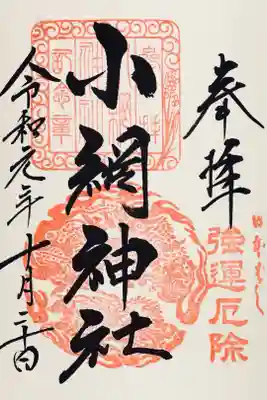 奉拝
日本ばし
強運厄除
小網神社
令和元年十月二十日